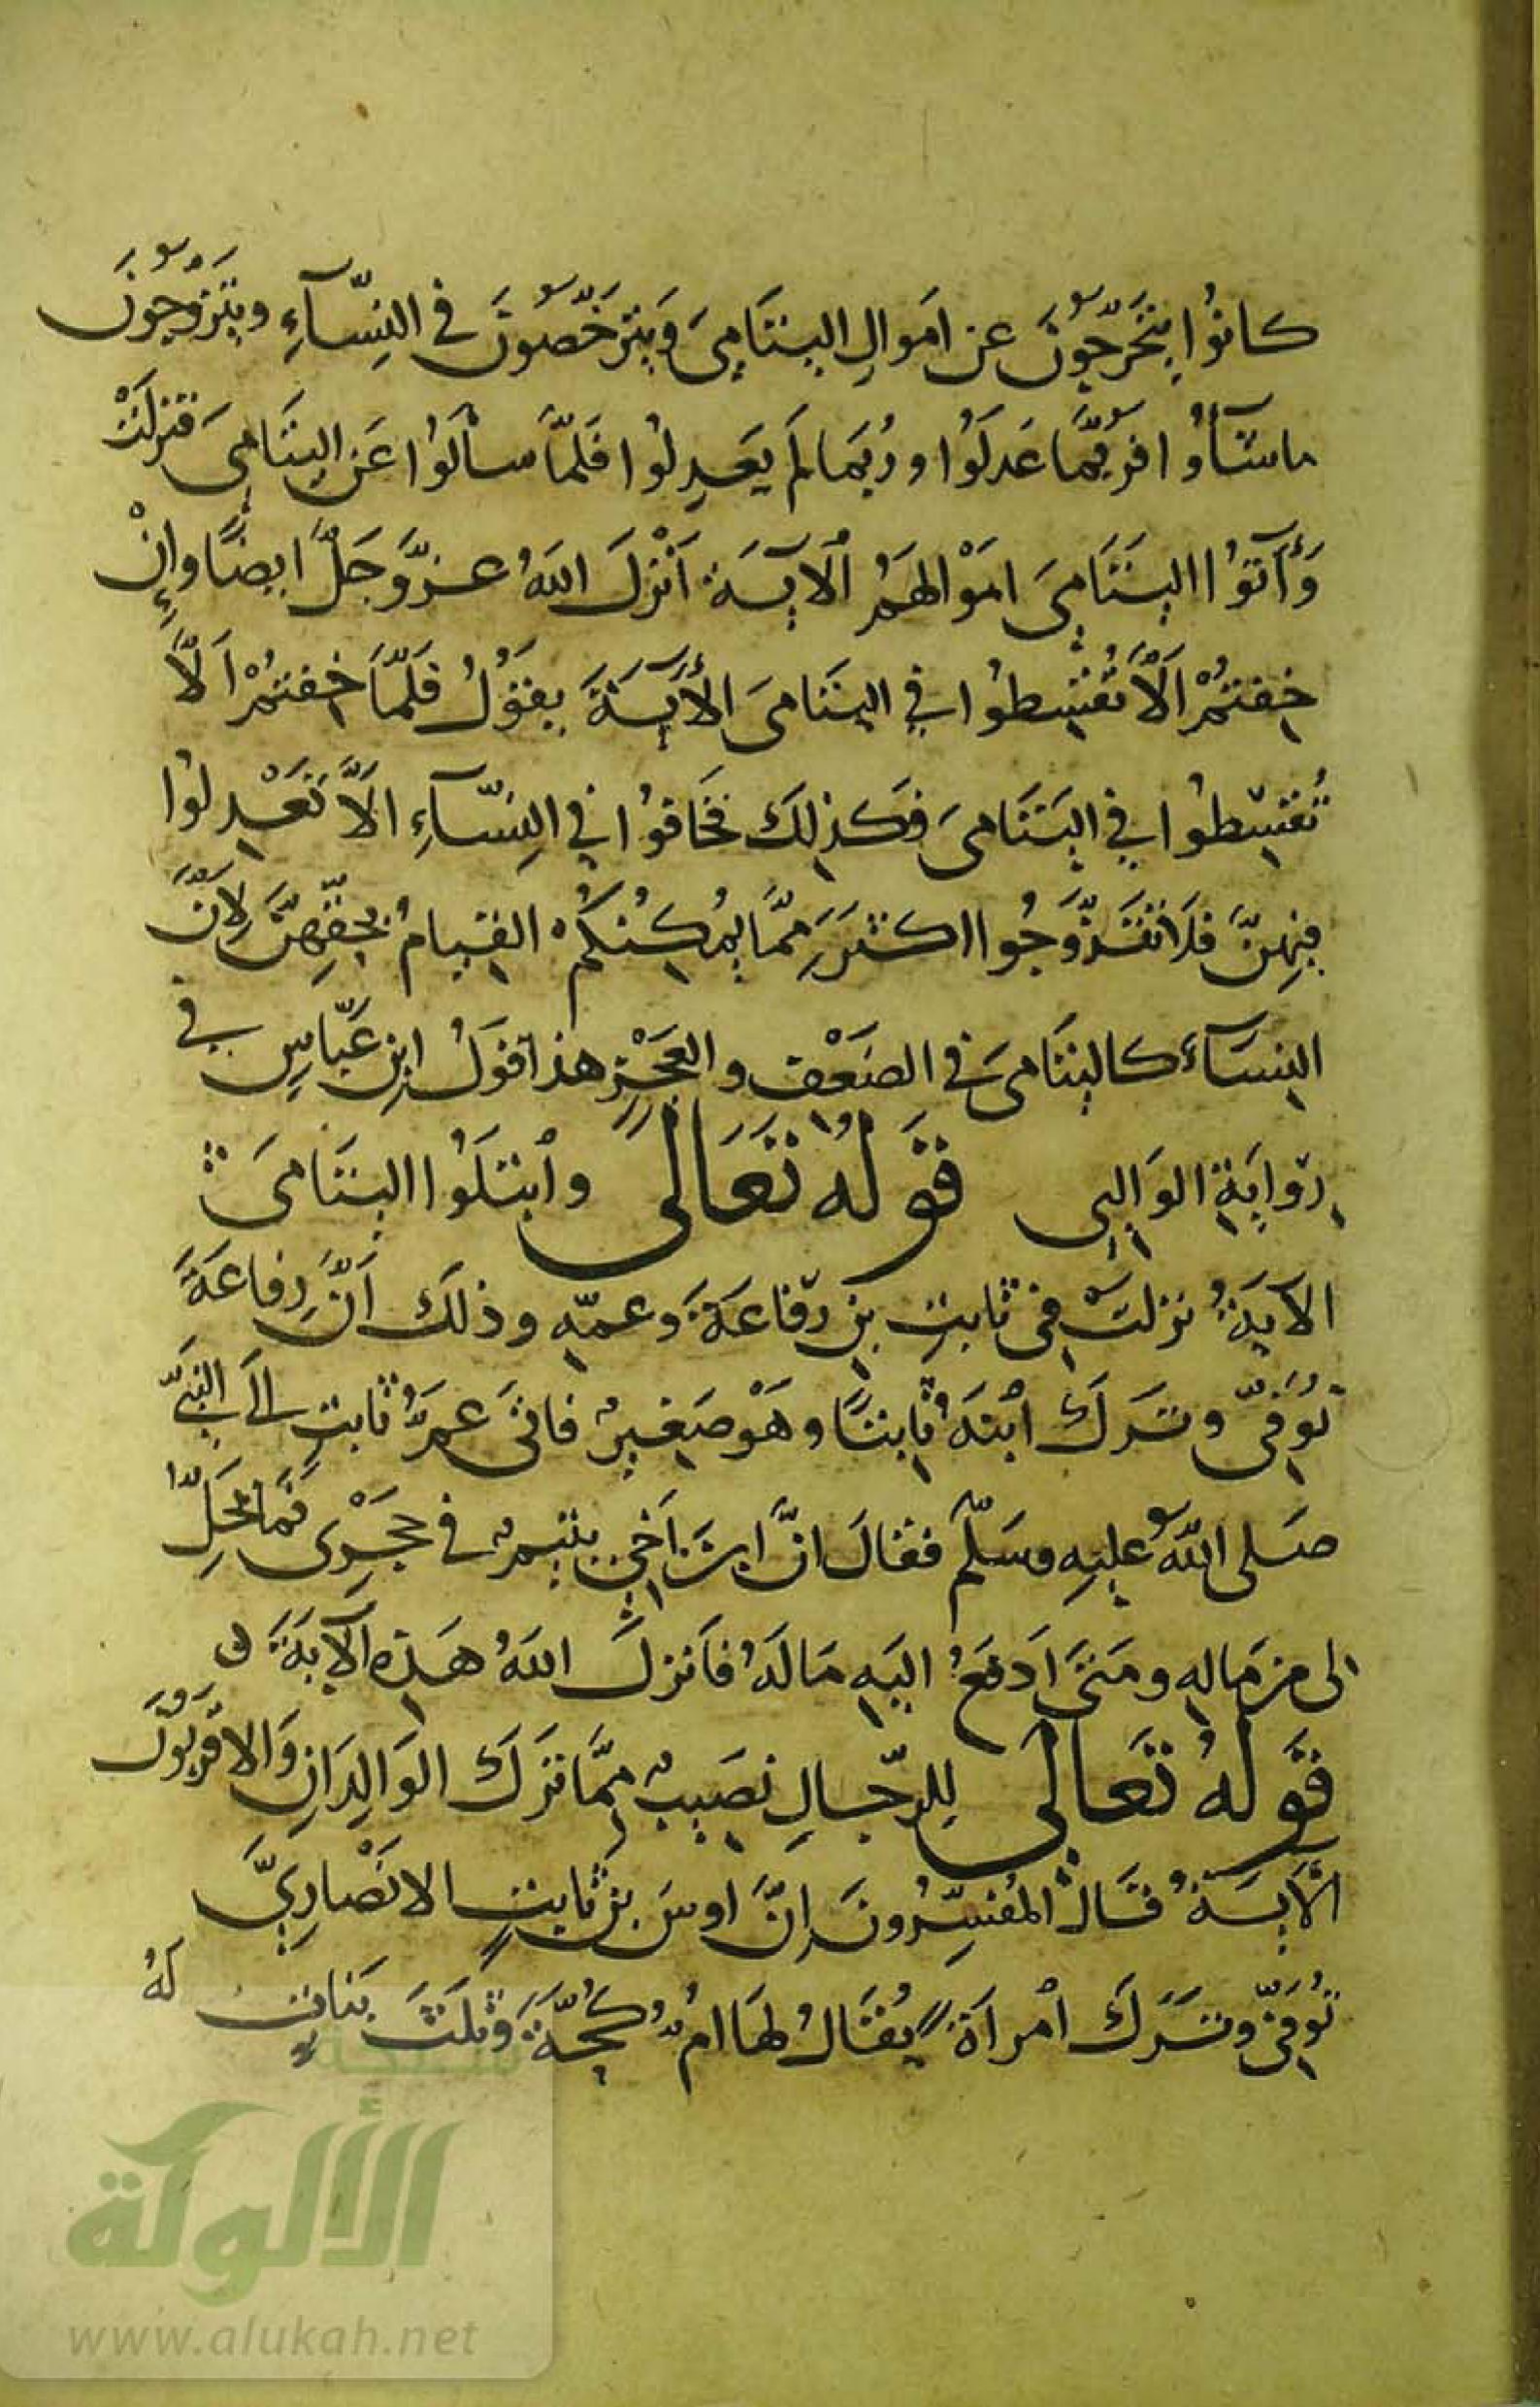 كانُوا يتَحَرَّجُونَ عن اَموالِ اليتَامىَ وَيترَخَّصُونَ في النِّسَآءِ ويَتزوَّجُونَ
ماشَآُوا فرُبمَّا عَدلَوُا ورُبمَا لَم يَعدِلوُا فلَمَّا سألَوُا عَنِ اليتَامىَ فنزلَتْ
وَأَتوُا اليَتَامىَ امَوْالهَمُ ٱلآيَةَ اَنْزلَ اللهُ عزَّوَجَلَّ ايضًا وإِنْ
خِفتمُ ْاَلَّا تُقسِطوُا فِي اليتَامىَ الأَيَةَ يقوَلُ فلَمَّا خِفتمُ ْاَلَّا
تُقسِطوُا فِي اليَتَامىَ فكذلِكَ فخَافوُا فيِ النِسَّآءِ اَلَّا تَعْدِلوُا
فيِهنَّ فلاَ تتَزَوَّجُوا اكثرَ َمِمَّا يُمكِنُكمُْ القيامُ بحِقّهِنَّ لِاَنَّ
النِسَآءَ كاليتَامىَ في الضَعْفِ والعَجْزِ هذا قوَلُ ابنِ عَبّاسٍ في
رِوّايَةِ الوَالِبيِ قوَلهُ تعَالَى وٱبتلَوُا اليتَامىَ
الآيَةُ نزلتْ في ثابتِ بنِ رفّاعَةَ وَعمّهِ وذلكَ اَنَّ رِفاعَةَ
تُوُفىّ وترَكَ ٱبنَهُ ثابِتًا وهَوْ صَغيرٌ فاتىَ عمُّ ثابتٍ الَى النبَيّ
صَلى اللهُ عليَهِ وسَلّمَ فقالَ انَّ ابنَ اَخيِ يتيمٌ في حجرِى فمَا يحَلُّ
لى مِن مَالهِ ومَتىَ اَدفعُ اليَهِ مَالَهُ فاَنزلَ اللهُ هَذِهِ الآيَةَ و
قوَلهُ تعَالَى لِلرّجالِ نصَيبٌ مِمَّا ترَكَ الوَالِدَانِ وَالاقرَبوُنَ
الآيَةُ قالَ المُفسِّرُونَ اِنَّ اوسَ بنَ ثابتٍ الانَصْارِيَّ
تُوُفِىّ وترَكَ ٱمرأةً يُقالُ لهَا امُّ كُجَّةَ وَثلَثَ بَناتٍ لَهُ
شبكة
الألوكة
www.alukah.net